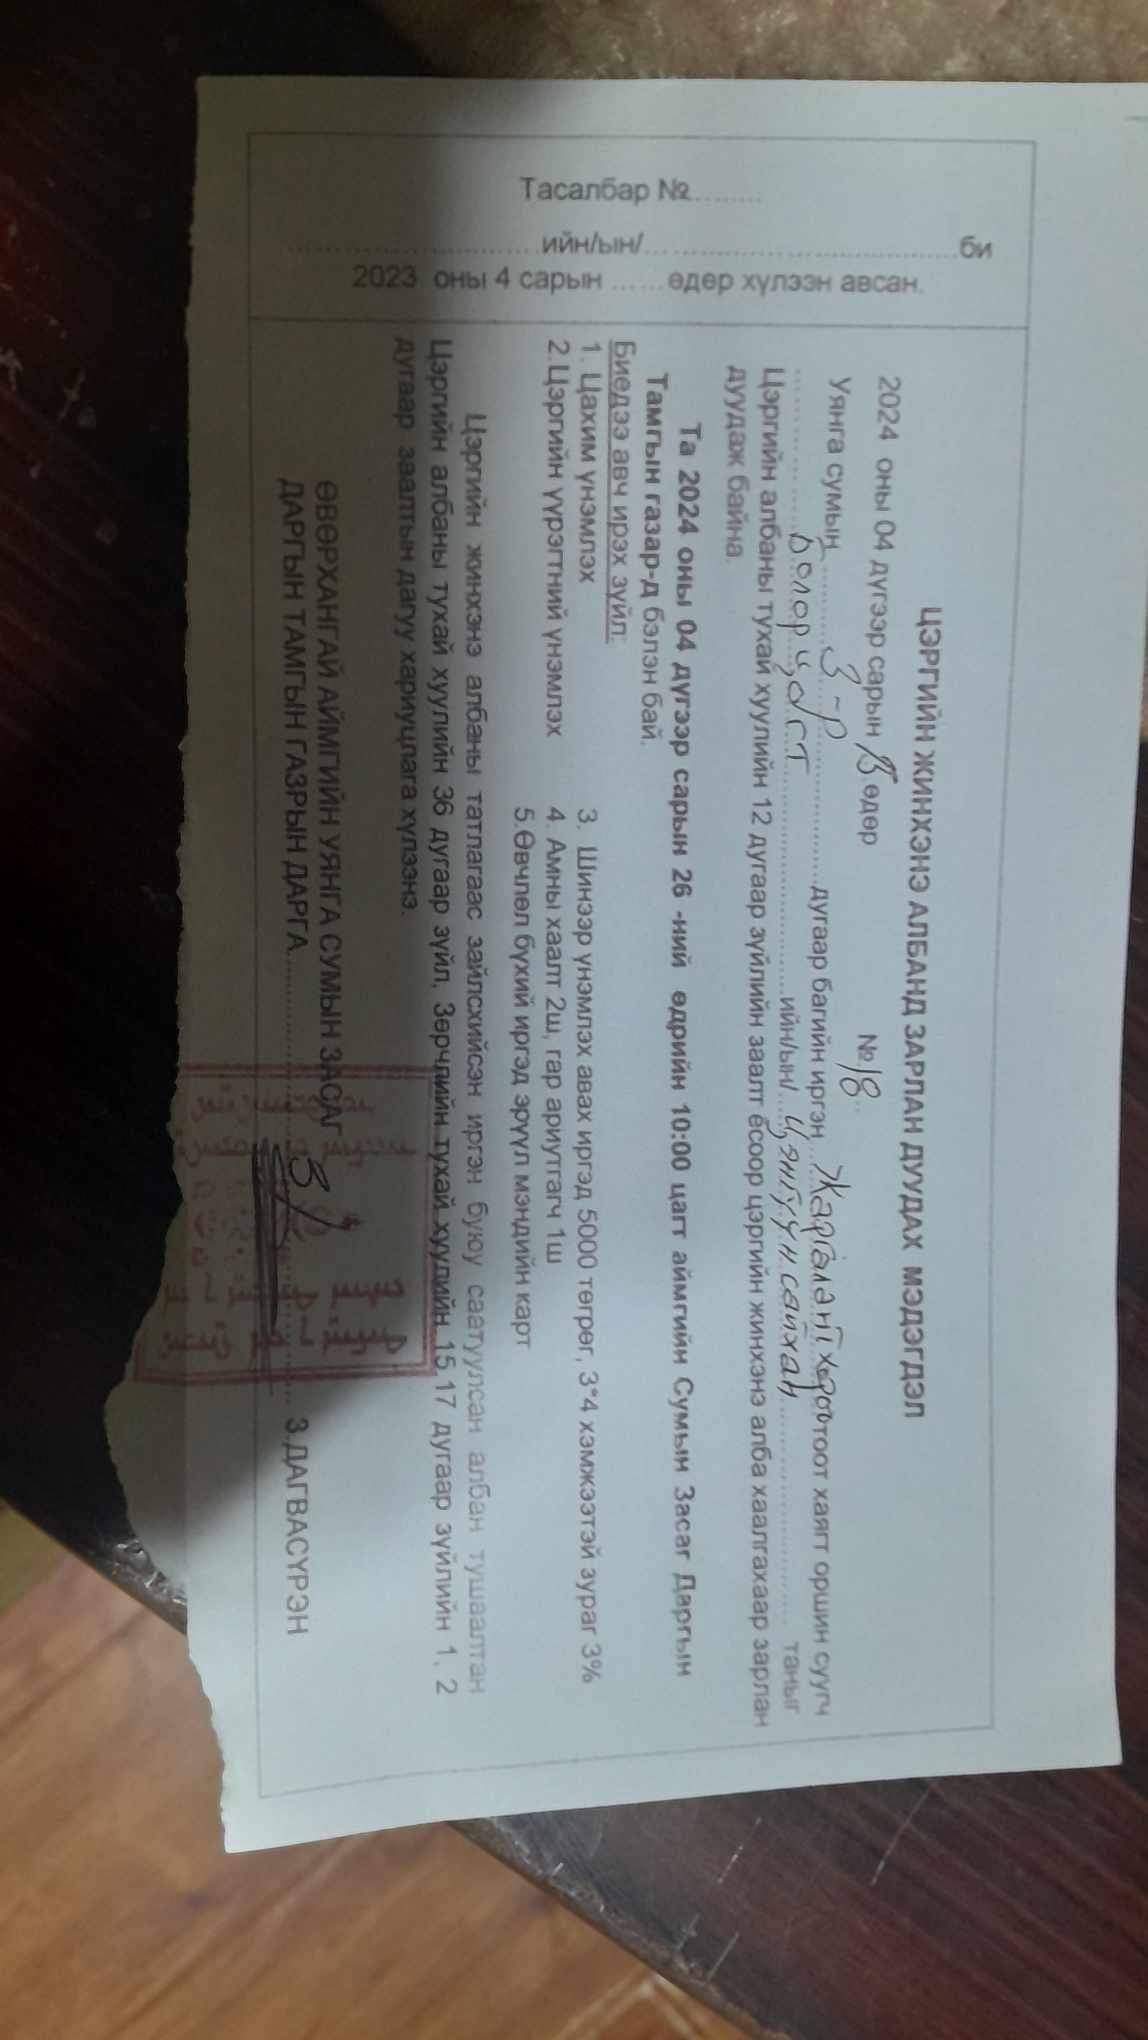 Тасалбар №........
.............................. ийн/ын/........................................би
2023 оны 4 сарын ...... өдөр хүлээн авсан.
ЦЭРГИЙН ЖИНХЭНЭ АЛБАНД ЗАРЛАН ДУУДАХ МЭДЭГДЭЛ
2024 оны 04 дүгээр сарын 15 өдөр №18
Уянга сумын 3-р дугаар багийн иргэн Жаргалант тоот хаягт оршин суугч
Болорцогт ийн/ын/ Цэнгүүнсайхан таныг
Цэргийн албаны тухай хуулийн 12 дугаар зүйлийн заалт ёсоор цэргийн жинхэнэ алба хаалгахаар зарлан
дуудаж байна.
Та 2024 оны 04 дүгээр сарын 26 -ний өдрийн 10:00 цагт аймгийн Сумын Засаг Даргын
Тамгын газар-д бэлэн бай.
Биедээ авч ирэх зүйл:
1. Цахим үнэмлэх
2.Цэргийн үүрэгтний үнэмлэх
3. Шинээр үнэмлэх авах иргэд 5000 төгрөг, 3*4 хэмжээтэй зураг 3%
4. Амны хаалт 2ш, гар ариутгагч 1ш
5.Өвчлөл бүхий иргэд эрүүл мэндийн карт
Цэргийн жинхэнэ албаны татлагаас зайлсхийсэн иргэн буюу саатуулсан албан тушаалтан
Цэргийн албаны тухай хуулийн 36 дугаар зүйл, Зөрчлийн тухай хуулийн 15.17 дугаар зүйлийн 1, 2
дугаар заалтын дагуу хариуцлага хүлээнэ.
ӨВӨРХАНГАЙ АЙМГИЙН УЯНГА СУМЫН ЗАСАГ
ДАРГЫН ТАМГЫН ГАЗРЫН ДАРГА........................ З.ДАГВАСҮРЭН